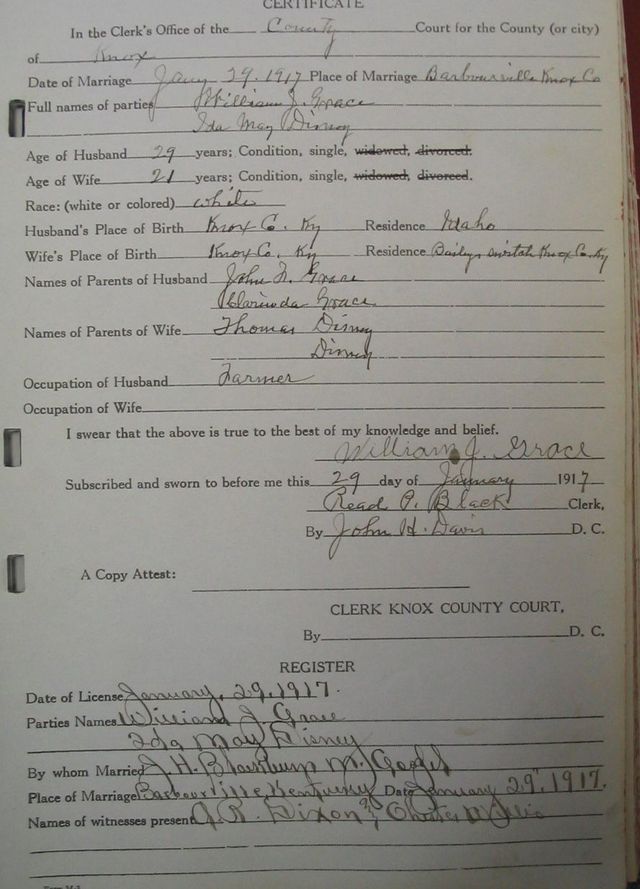 CERTIFICATE
In the Clerk's Office of the County Court for the County (or city)
of Knox
Date of Marriage Jany 29. 1917 Place of Marriage Barbourville Knox Co
Full names of parties William J. Grace
Ida May Disney
Age of Husband 29 years; Condition, single, widowed, divorced.
Age of Wife 21 years; Condition, single, widowed, divorced.
Race: (white or colored) white
Husband's Place of Birth Knox Co. Ky Residence Idaho
Wife's Place of Birth Knox Co. Ky Residence Bailys switch Knox Co Ky
Names of Parents of Husband John F. Grace
Clarinda Grace
Names of Parents of Wife Thomas Disney
Disney
Occupation of Husband Farmer
Occupation of Wife
I swear that the above is true to the best of my knowledge and belief.
William J. Grace
Subscribed and sworn to before me this 29 day of January 1917
Read P. Black Clerk,
By John H. Davis D. C.
A Copy Attest:
CLERK KNOX COUNTY COURT,
By D. C.
REGISTER
Date of License January, 29, 1917.
Parties Names William J. Grace
Ida May Disney
By whom Married J. H. Blackburn M.
Place of Marriage Barbourville Kentucky Date January 29, 1917.
Names of witnesses present J. R. Dixon &